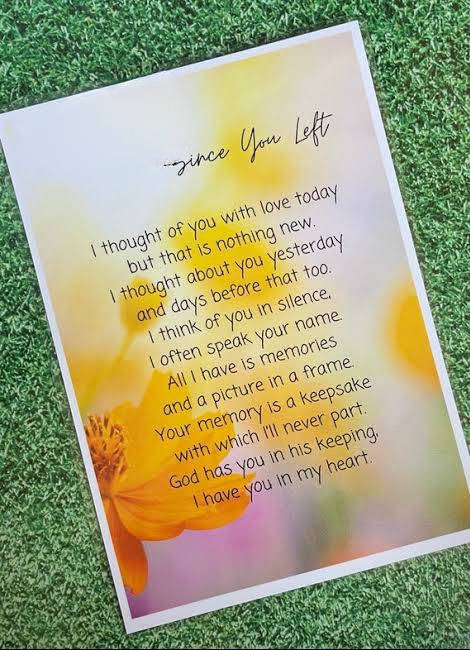 Since You Left
I thought of you with love today
but that is nothing new.
I thought about you yesterday
and days before that too.
I think of you in silence,
I often speak your name
All I have is memories
and a picture in a frame.
Your memory is a keepsake
with which I'll never part.
God has you in his keeping,
I have you in my heart.